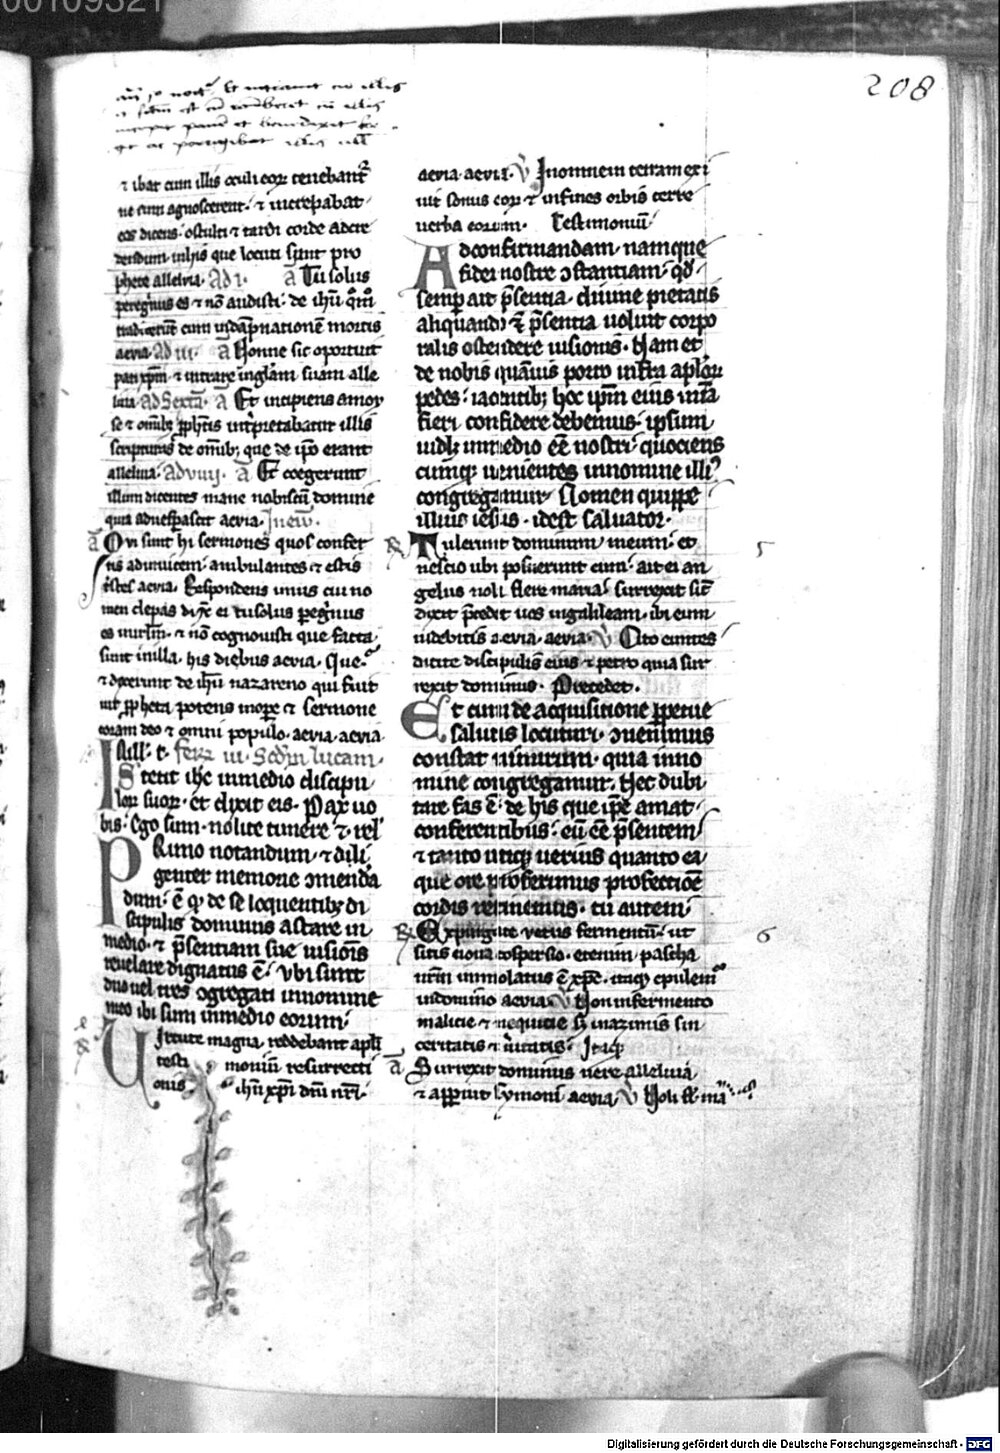 00109321
208
⁊ ibat cum illis oculi eoꝝ tenebantᷣ
ne eum agnoscerent· ⁊ increpabat
eos dicens· o stulti ⁊ tardi corde ad cre
dendum in hijs que locuti sunt pro
phete alleluia· Ad i· a̅ Tu solus
peregͥnus es ⁊ nō audisti· de ihū qͦmͦ
tradiderūt eum ī dāpnationē mortis
aevia· Ad iii· a̅ Nonne sic oportuit
pati xpm̄· ⁊ intrare in gl̄am suam alle
luia ad Sextā· a̅ Et incipiens a moy
se ⁊ om̄ibꝫ ꝓph̄tis int̾pretabatur illis
scripturas de om̄ibꝫ que de ip̄o erant
alleluia· Ad viiij· a̅ Et coegerunt
illum dicentes mane nobiscū domine
quia aduespascit aevia· In ew̄·
a̅ Qvi sunt hi sermones quos confer
tis adinuicem· ambulantes ⁊ estis
tͥstes aevia· Respondens unus cui no
men cleopas dix̄ ei tu solus peregͥnus
es in irl̄m· ⁊ nō cognouisti que facta
sunt in illa· his diebus aevia· Que·
⁊ dixerunt de ihū nazareno qui fuit
uir ꝓpheta potens in oꝑe ⁊ sermone
coram deo ⁊ omni populo· aevia· aevia
In ill· t· feria iii· Scdm̄ lucam·
Stetit ihc in medio discipu
loꝝ suoꝝ· et dixit eis· Pax uo
bis· Ego sum· nolite timere ⁊ rel̾
Primo notandum· ⁊ dili
genter memorie ↄmenda
dum· ē qͥ de se loquentibꝫ di
scipulis dominus astare in
medio· ⁊ p̄sentiam sue uisiōis
reuelare dignatus ē· Vbi sunt
duo uel tres ↄgregati in nomine
meo ibi sum in medio eorum·
℟ Virtute magna reddebant apl̄i
testi moniū resurrecti
onis ihū xpī dn̄i nr̄i·
aevia aevia· ℣ In omnem terram exi
uit sonus eoꝝ ⁊ in fines orbis terre
uerba eorum· Testimoniū·
Ad confirmandam namque
fidei nostre ↄstantiam· qd̄
semꝑ ait p̄sentia· diuine pietatis
aliquando ⁊ p̄sentia uoluit corpo
ralis ostendere uisionis· Nam et
de nobis quāuis porro infra aplōꝝ
pedes· iacentibꝫ hoc ip̄m eius mīa
fieri confidere debemus· ipsum
uidꝫ in medio eē nostri· quociens
cumqꝫ uenientes in nomine illiꝰ
congregamur· Nomen quippe
illius iesus· id est saluator·
℟ Tulerunt dominum meum· et
nescio ubi posuerunt eum· ait ei an
gelus noli flere maria· surrexit sic̄
dixit p̄cedet uos in galileam· ibi eum
uidebitis aevia· aevia· ℣ Cito euntes
dicite discipulis eius ⁊ petro quia sur
rexit dominus· Precedet·
Et cum de acquisitione ꝑpetue
salutis locuturi· ↄuenimus
constat nimirum· quia in no
mine congregamur· Nec dubi
tare fas ē· de his que ip̄e amat·
conferentibus· eū eē p̄sentem
⁊ tanto utiqꝫ uerius quanto ea
que ore proferimus profectiōē
cordis retinemus· tu autem·
℟ Expurgate uetus fermentū· ut
sitis noua cōspersio· etenim pascha
nr̄m immolatus ē xp̄c· itaqꝫ epulemͬ
in domino aevia ℣ Non in fermento
malicie ⁊ nequicie sꝫ in azimis sin
ceritatis ⁊ ũitatis· Itaqꝫ
a̅ Surrexit dominus uere alleluia
⁊ apparuit symoni aevia ℣ Noli fl̄ mā
5
6
Digitalisierung gefördert durch die Deutsche Forschungsgemeinschaft - DFG